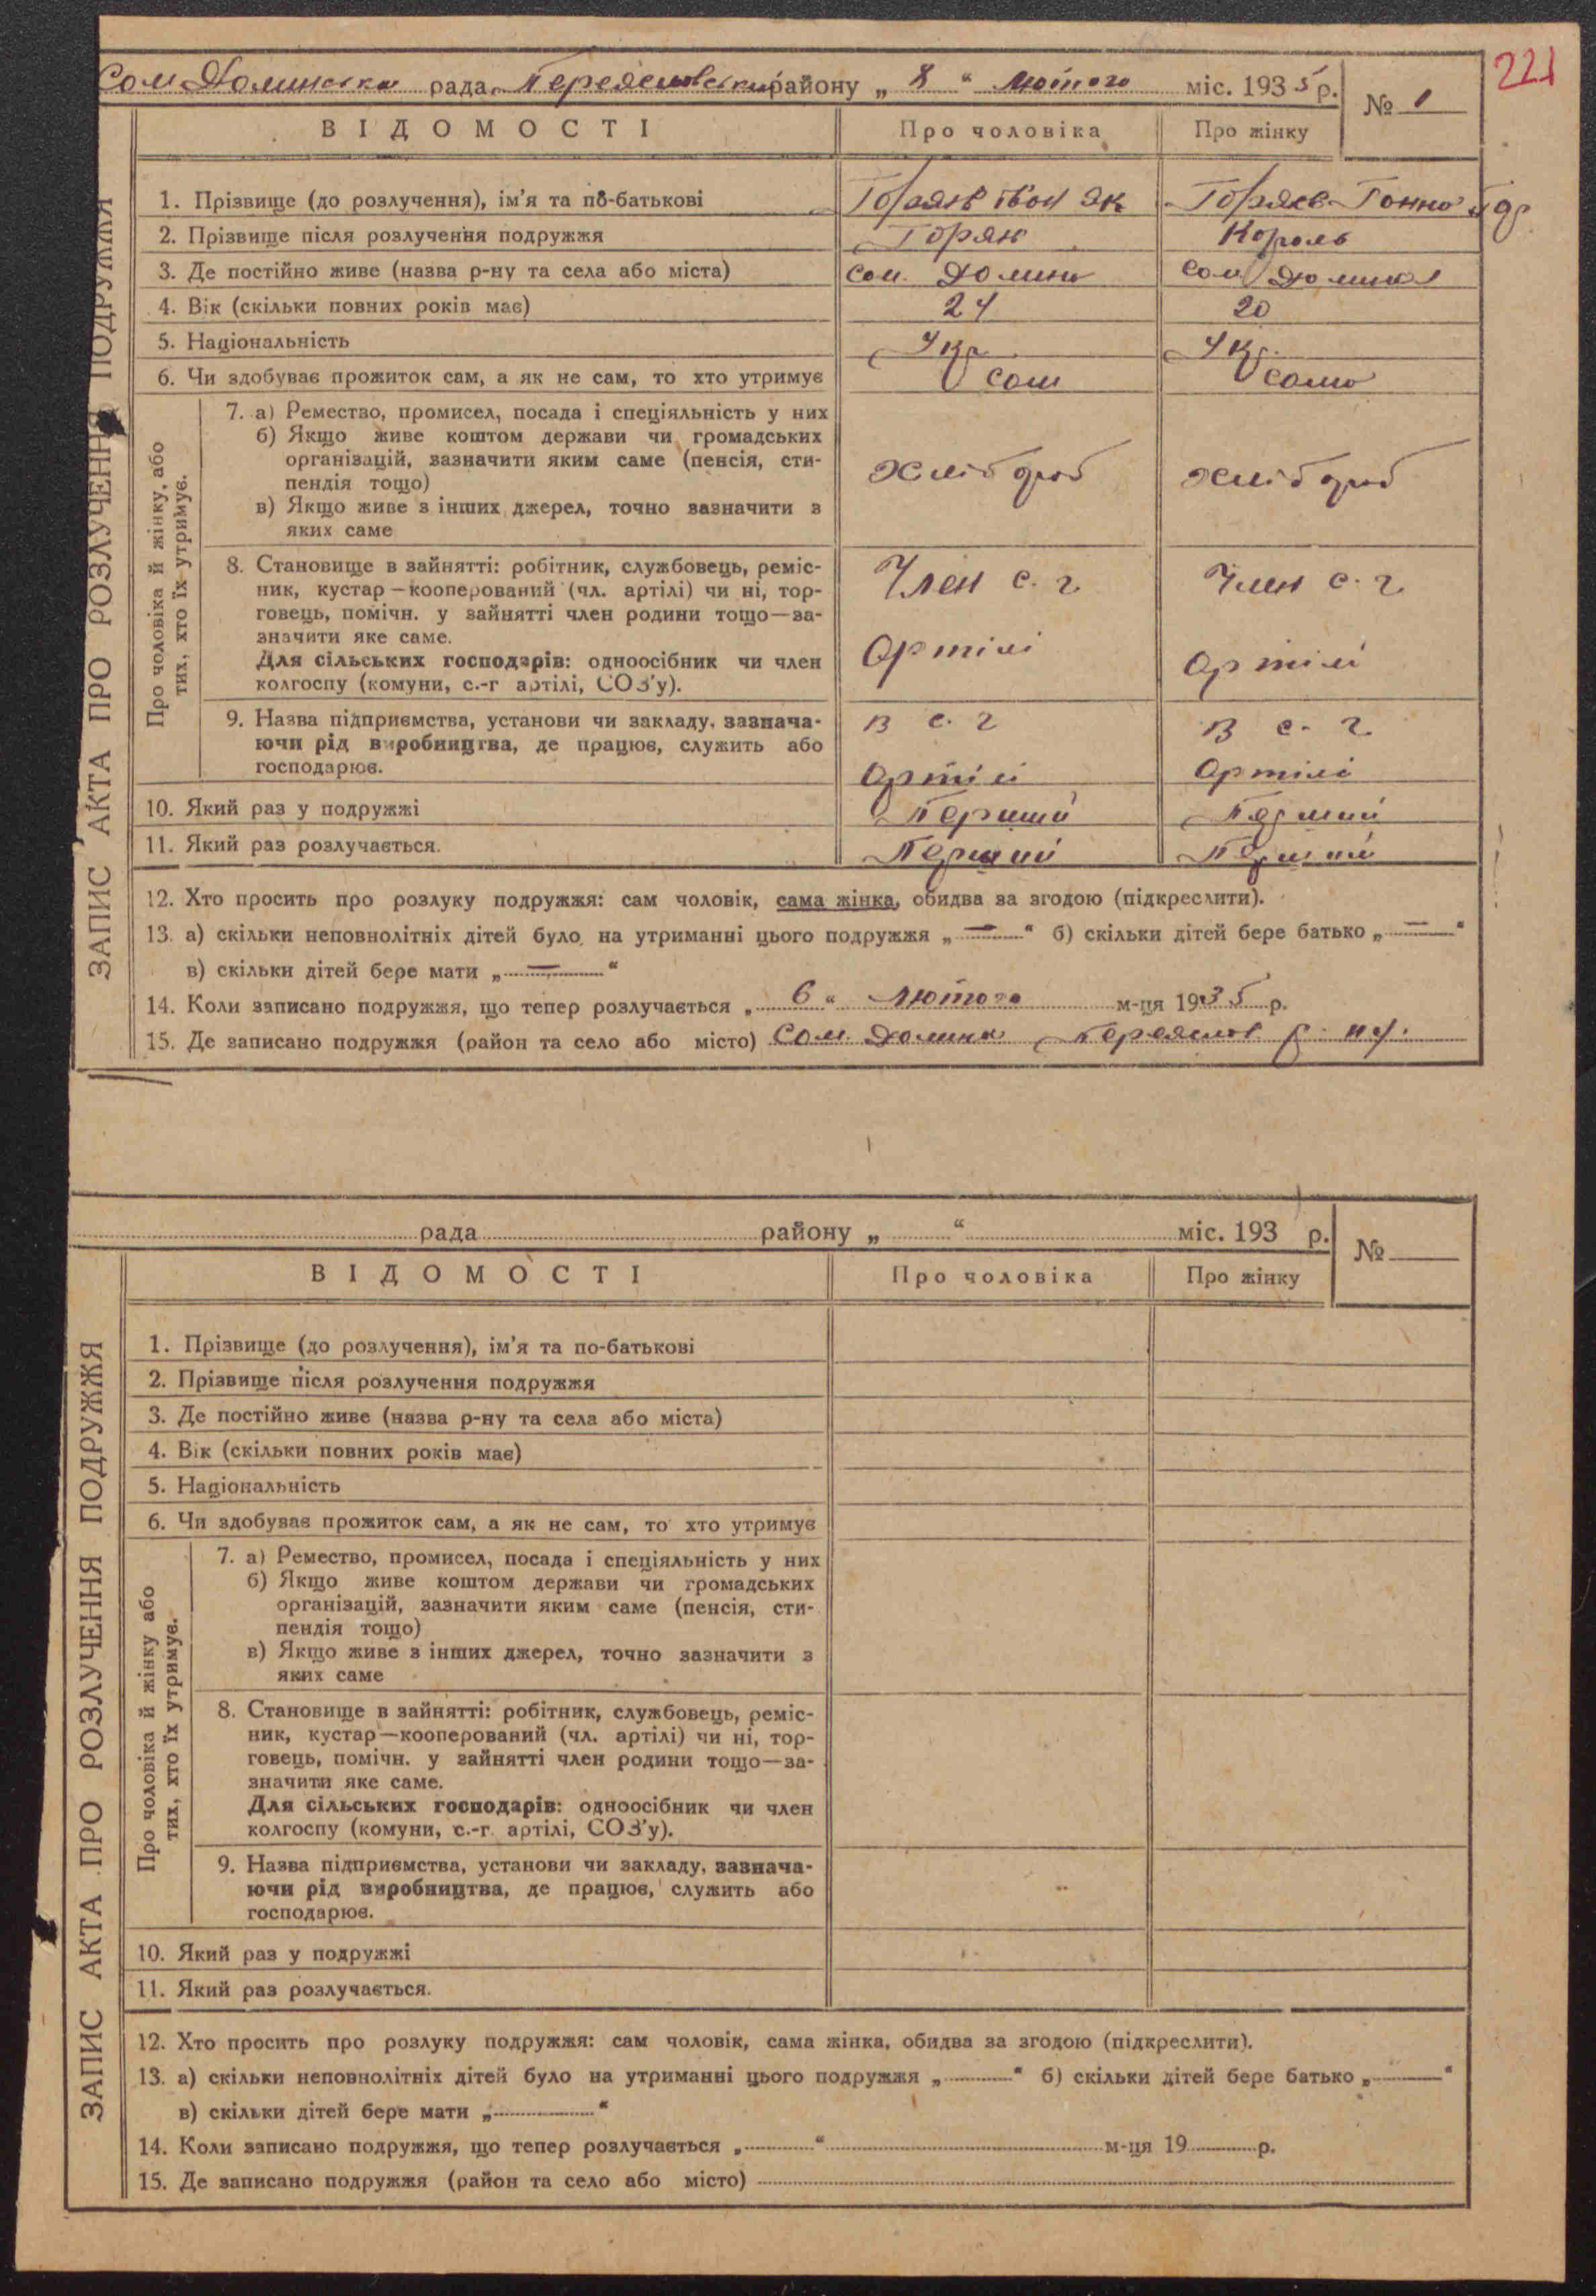 221
Сом Долинська рада Переяславський району „ 8 “ Лютого міс. 1935 р. № 1
ЗАПИС АКТА ПРО РОЗЛУЧЕННЯ ПОДРУЖЖЯ
ВІДОМОСТІ Про чоловіка Про жінку
1. Прізвище (до розлучення), ім’я та по-батькові Горян Іван Як
2. Прізвище після розлучення подружжя Горян Король
3. Де постійно живе (назва р-ну та села або міста) Сом. Долина Сом Долина
4. Вік (скільки повних років має) 24 20
5. Національність Укр Укр.
6. Чи здобуває прожиток сам, а як не сам, то хто утримує сам сама
Про чоловіка й жінку, або
тих, хто їх утримує.
7. а) Ремество, промисел, посада і спеціяльність у них
б) Якщо живе коштом держави чи громадських
організацій, зазначити яким саме (пенсія, сти-
пендія тощо)
хлібороб хлібороб
в) Якщо живе з інших джерел, точно зазначити з
яких саме
8. Становище в зайнятті: робітник, службовець, реміс-
ник, кустар—кооперований (чл. артілі) чи ні, тор- Член с. г. Член с. г.
говець, помічн. у зайнятті член родини тощо—за-
значити яке саме.
Для сільських господарів: одноосібник чи член Артілі Артілі
колгоспу (комуни, с.-г артілі, СОЗ’у).
9. Назва підприємства, установи чи закладу, зазнача- в с. г в с. г.
ючи рід виробництва, де працює, служить або
господарює. Артілі Артілі
10. Який раз у подружжі Перший Перший
11. Який раз розлучається. Перший Перший
12. Хто просить про розлуку подружжя: сам чоловік, сама жінка, обидва за згодою (підкреслити).
13. а) скільки неповнолітніх дітей було на утриманні цього подружжя „ — “ б) скільки дітей бере батько „ — “
в) скільки дітей бере мати „ — “
14. Коли записано подружжя, що тепер розлучається „ 6 “ Лютого м-ця 1935 р.
15. Де записано подружжя (район та село або місто) Сом. Долина Переяслов р-ну.
рада району „ “ міс. 193 р. №
ЗАПИС АКТА ПРО РОЗЛУЧЕННЯ ПОДРУЖЖЯ
ВІДОМОСТІ Про чоловіка Про жінку
1. Прізвище (до розлучення), ім’я та по-батькові
2. Прізвище після розлучення подружжя
3. Де постійно живе (назва р-ну та села або міста)
4. Вік (скільки повних років має)
5. Національність
6. Чи здобуває прожиток сам, а як не сам, то хто утримує
Про чоловіка й жінку або
тих, хто їх утримує.
7. а) Ремество, промисел, посада і спеціяльність у них
б) Якщо живе коштом держави чи громадських
організацій, зазначити яким саме (пенсія, сти-
пендія тощо)
в) Якщо живе з інших джерел, точно зазначити з
яких саме
8. Становище в зайнятті: робітник, службовець, реміс-
ник, кустар—кооперований (чл. артілі) чи ні, тор-
говець, помічн. у зайнятті член родини тощо—за-
значити яке саме.
Для сільських господарів: одноосібник чи член
колгоспу (комуни, с.-г. артілі, СОЗ’у).
9. Назва підприємства, установи чи закладу, зазнача-
ючи рід виробництва, де працює, служить або
господарює.
10. Який раз у подружжі
11. Який раз розлучається.
12. Хто просить про розлуку подружжя: сам чоловік, сама жінка, обидва за згодою (підкреслити).
13. а) скільки неповнолітніх дітей було на утриманні цього подружжя „ “ б) скільки дітей бере батько „ “
в) скільки дітей бере мати „ “
14. Коли записано подружжя, що тепер розлучається „ “ м-ця 19 р.
15. Де записано подружжя (район та село або місто)